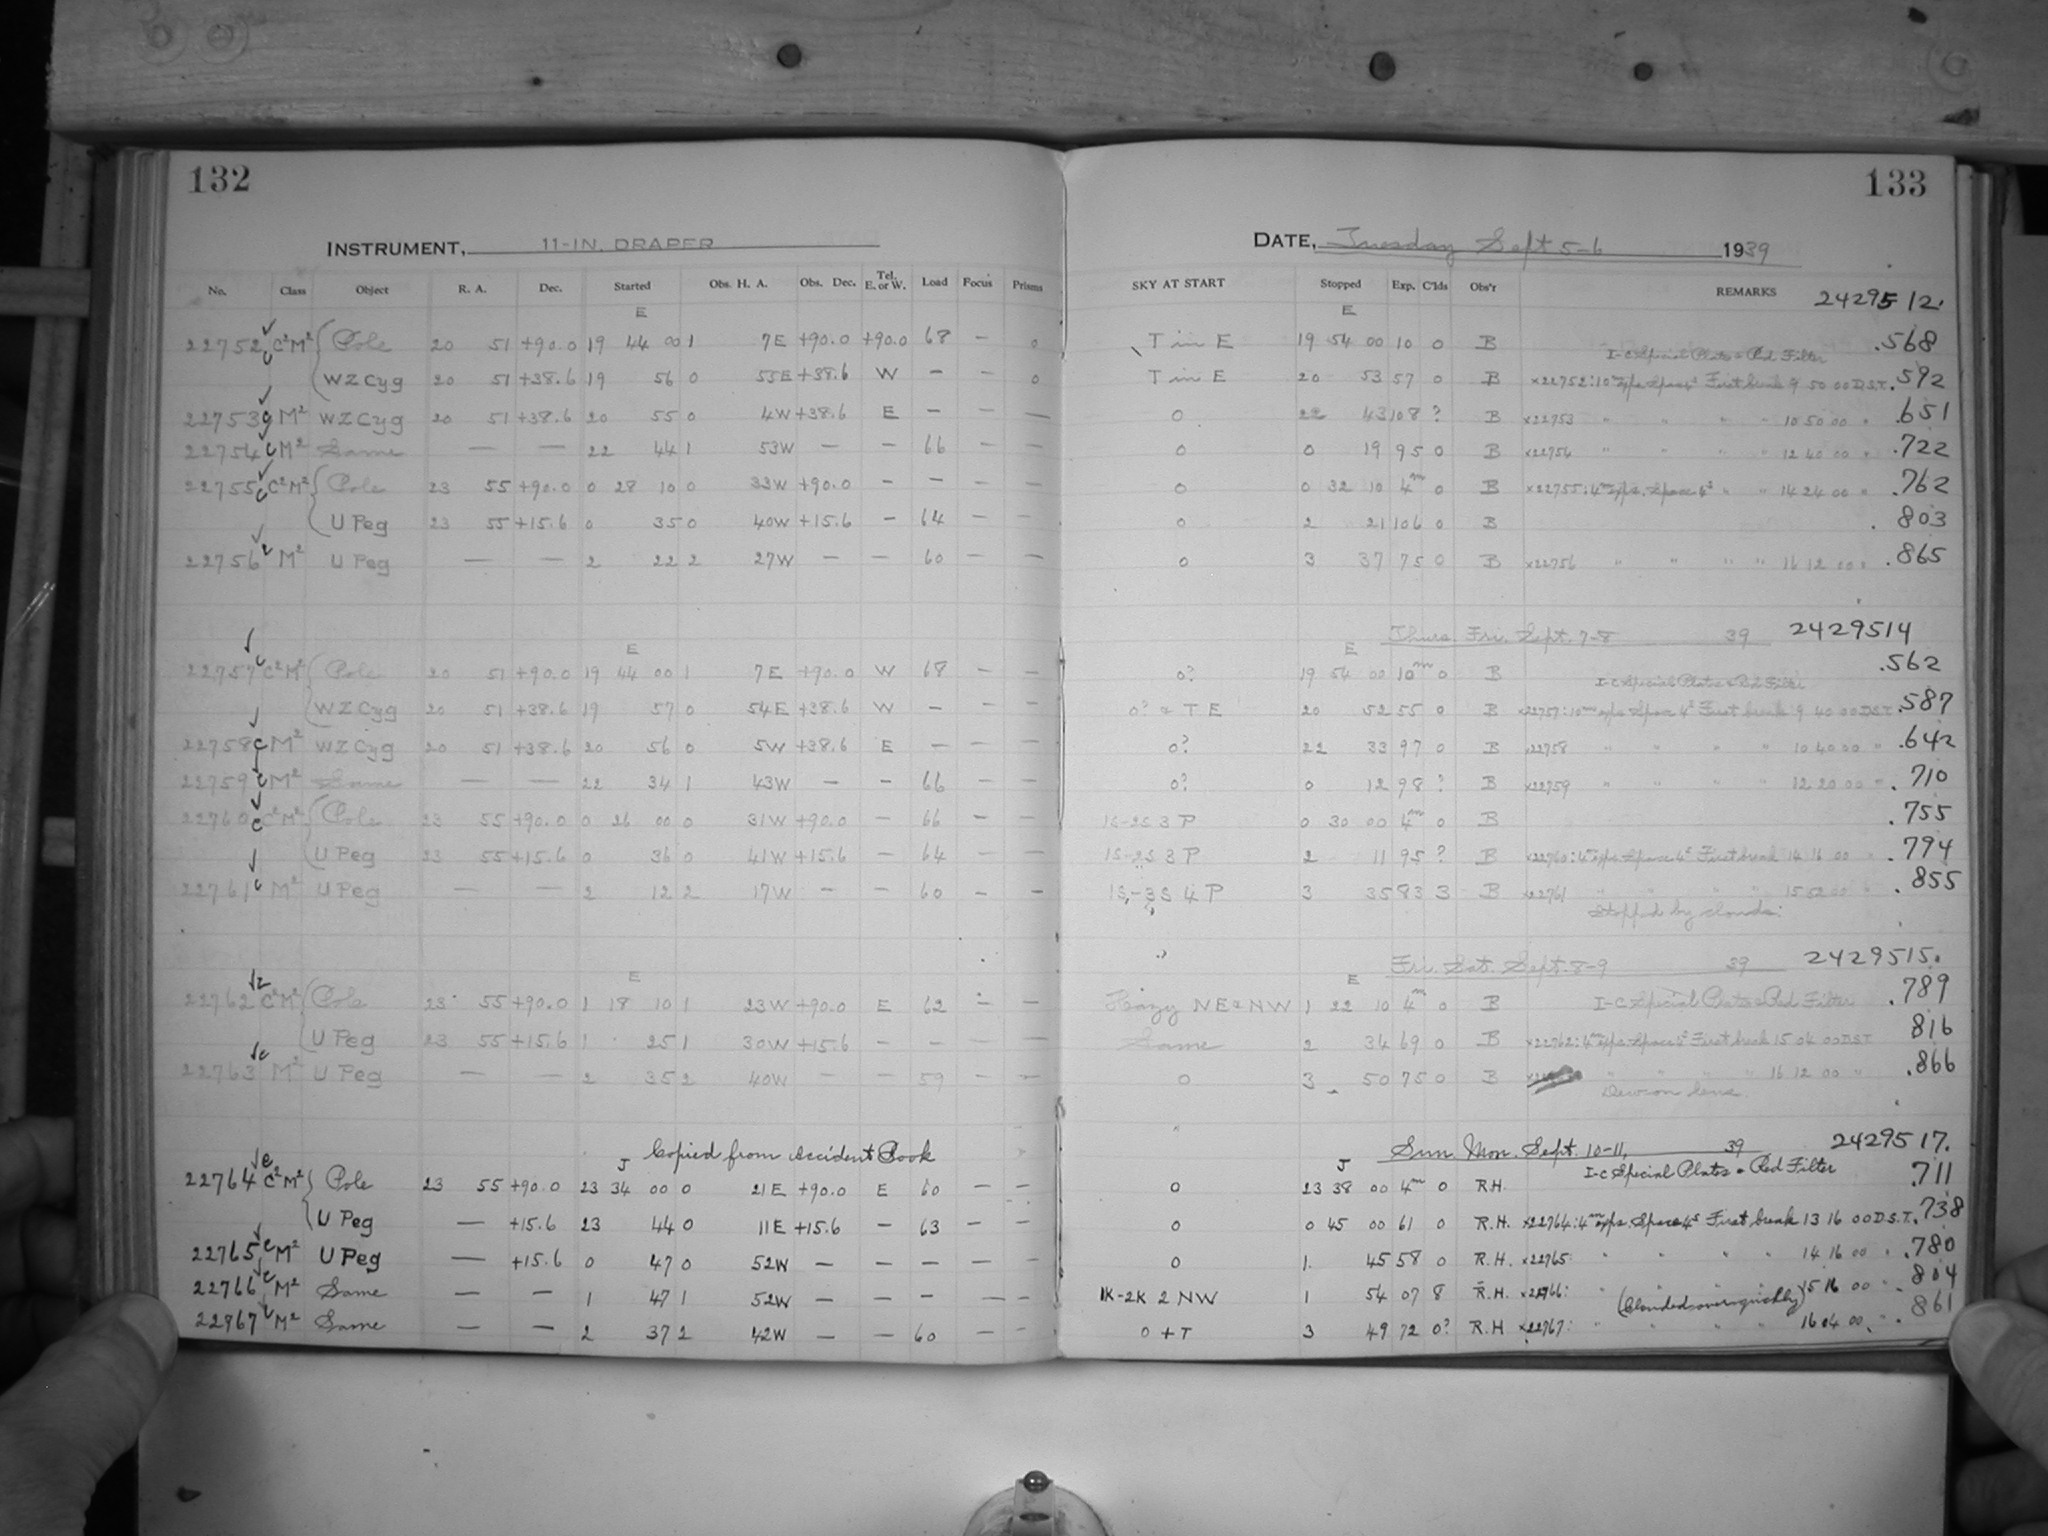 132
133
INSTRUMENT, 11-IN. DRAPER
DATE, Tuesday Sept 5-6 1939
No. Class Object R. A. Dec. Started Obs. H. A. Obs. Dec. Tel. E. or W. Load Focus Prisms SKY AT START Stopped Exp. C'lds Obs'r REMARKS 2429512.
E E
22752 C²M² Pole 20 51 +90.0 19 44 00 1 7E +90.0 +90.0 68 – 0 T in E 19 54 00 10 0 B I-C Special Plates & Red Filter .568
WZ Cyg 20 51 +38.6 19 56 0 55E +38.6 W – – 0 T in E 20 53 57 0 B x22752: 10ᵐ exps. Space 4ˢ First break 9 50 00 D.S.T. .592
22753 C M² WZ Cyg 20 51 +38.6 20 55 0 4W +38.6 E – – — 0 22 43 108 ? B x22753 " " " " 10 50 00 " .651
22754 C M² Same — — 22 44 1 53W — — 66 – – 0 0 19 95 0 B x22754 " " " " 12 40 00 " .722
22755 C C²M² Pole 23 55 +90.0 0 28 10 0 33W +90.0 – – – – 0 0 32 10 4ᵐ 0 B x22755: 4ᵐ exps. Space 4ˢ " " 14 24 00 " .762
U Peg 23 55 +15.6 0 35 0 40W +15.6 – 64 – – 0 2 21 106 0 B .803
22756 C M² U Peg — — 2 22 2 27W — — 60 – – 0 3 37 75 0 B x22756 " " " " 16 12 00 " .865
Thurs. Fri. Sept. 7-8 39 2429514
E E
22757 C C²M² Pole 20 51 +90.0 19 44 00 1 7E +90.0 W 68 – – 0? 19 54 00 10ᵐ 0 B I-C Special Plates & Red Filter .562
WZ Cyg 20 51 +38.6 19 57 0 54E +38.6 W – – – 0? & T E 20 52 55 0 B x22757: 10ᵐ exps. Space 4ˢ First break 9 40 00 D.S.T. .587
22758 C M² WZ Cyg 20 51 +38.6 20 56 0 5W +38.6 E — – – 0? 22 33 97 0 B x22758 " " " " 10 40 00 " .642
22759 C M² Same — — 22 34 1 43W – – 66 – – 0? 0 12 98 ? B x22759 " " " " 12 20 00 " .710
22760 C C²M² Pole 23 55 +90.0 0 26 00 0 31W +90.0 – 66 – – 1S-2S 3 P 0 30 00 4ᵐ 0 B .755
U Peg 23 55 +15.6 0 36 0 41W +15.6 – 64 – – 1S-2S 3 P 2 11 95 ? B x22760: 4ᵐ exps. Space 4ˢ First break 14 16 00 " .794
22761 C M² U Peg — — 2 12 2 17W – – 60 – – 1S-3S 4 P 3 35 83 3 B x22761 " " " " 15 52 00 " .855
Stopped by clouds.
Fri. Sat. Sept. 8-9 39 2429515.
E E
22762 C C²M² Pole 23 55 +90.0 1 18 10 1 23W +90.0 E 62 – – Hazy NE & NW 1 22 10 4ᵐ 0 B I-C Special Plates & Red Filter .789
U Peg 23 55 +15.6 1 25 1 30W +15.6 – – – – Same 2 34 69 0 B x22762: 4ᵐ exps. Space 4ˢ First break 15 04 00 D.S.T. 816
22763 C M² U Peg — — 2 35 2 40W – – 59 – – 0 3 50 75 0 B " " " " 16 12 00 " .866
Dew on lens.
Copied from Accident Book Sun. Mon. Sept. 10-11, 39 2429517.
J J
22764 C C²M² Pole 23 55 +90.0 23 34 00 0 21E +90.0 E 60 – – 0 23 38 00 4ᵐ 0 R.H. I-C Special Plates & Red Filter .711
U Peg — +15.6 23 44 0 11E +15.6 – 63 – – 0 0 45 00 61 0 R.H. x22764: 4ᵐ exps. Space 4ˢ First break 13 16 00 D.S.T. .738
22765 C M² U Peg — +15.6 0 47 0 52W – – – – – 0 1. 45 58 0 R.H. x22765: " " " " 14 16 00 " .780
22766 C M² Same — — 1 47 1 52W – – – – – 1K-2K 2 NW 1 54 07 8 R.H. x22766: " (Clouded over quickly) 15 16 00 " .804
22767 C M² Same — — 2 37 2 42W – – 60 – – 0 + T 3 49 72 0? R.H x22767: " " " " 16 04 00 " .861